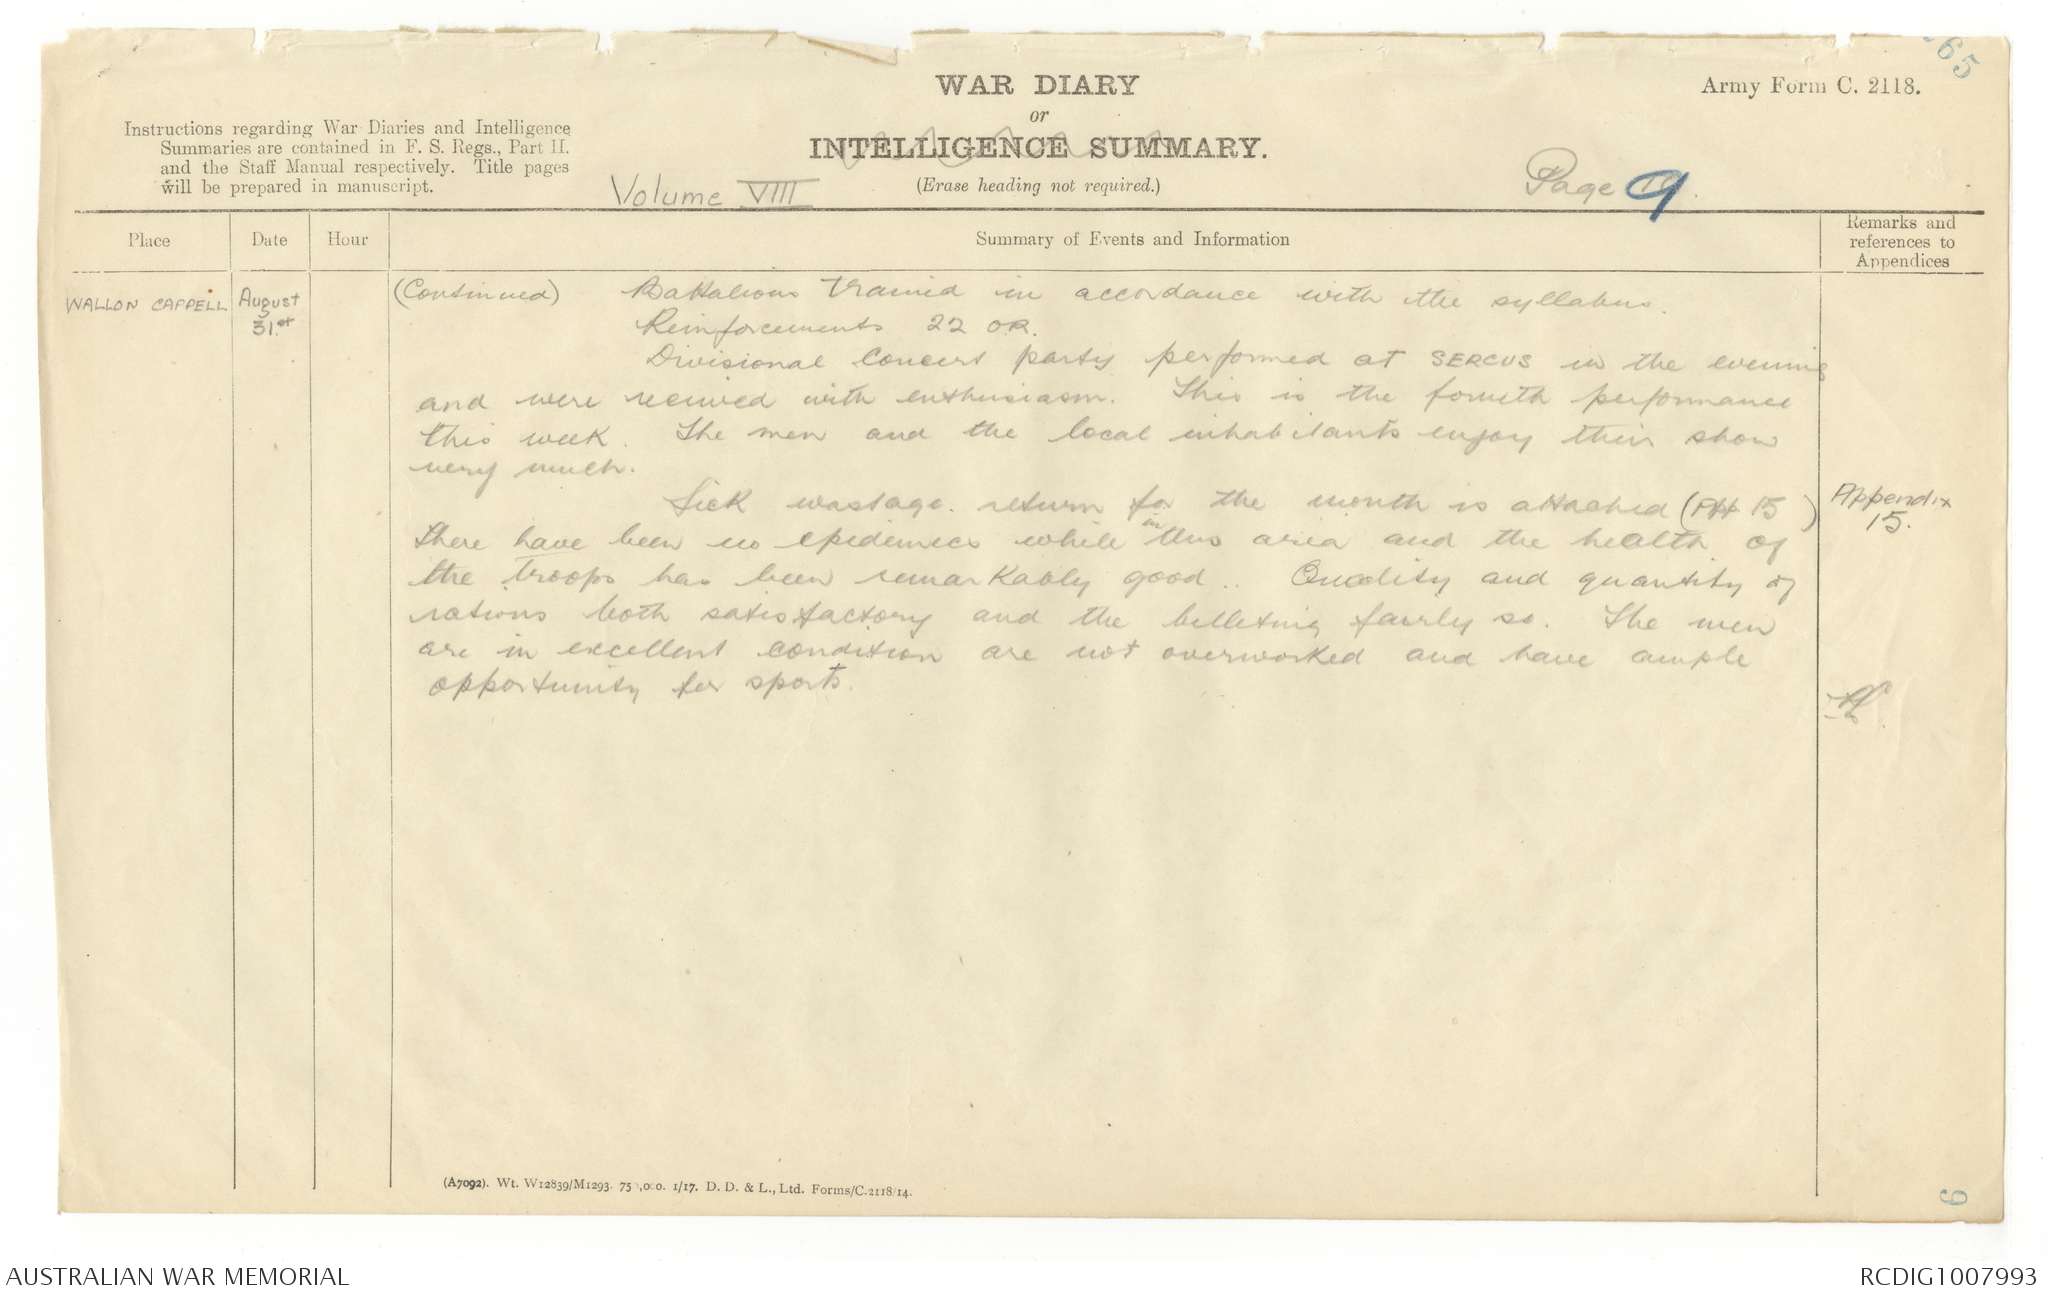 65
WAR DIARY
or
INTELLIGENCE SUMMARY.
(Erase heading not required.)
Army Form C. 2118.
Instructions regarding War Diaries and Intelligence
Summaries are contained in F. S. Regs., Part II.
and the Staff Manual respectively. Title pages
will be prepared in manuscript.
Volume VIII
Page 9
Place
Date
Hour
Summary of Events and Information
Remarks and
references to
Appendices
WALLON CAPPELL
August
31st
(Continued) Battalions trained in accordance with the syllabus.
Reinforcements 22 OR.
Divisional Concert party performed at SERCUS in the evening
and were received with enthusiasm. This is the fourth performance
this week. The men and the local inhabitants enjoy their show
very much.
Sick wastage return for the month is attached (APP 15)
Appendix
15.
There have been no epidemics while in this area and the health of
the troops has been remarkably good. Quality and quantity of
rations both satisfactory and the billeting fairly so. The men
are in excellent condition are not overworked and have ample
opportunity for sports.
(A7092). Wt. W12839/M1293. 75 ,000. 1/17. D. D. & L., Ltd. Forms/C.2118/14.
9
AUSTRALIAN WAR MEMORIAL
RCDIG1007993